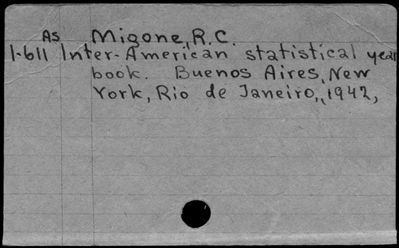 As Migone, R.C.
1-611 Inter-American statistical year
book. Buenos Aires, New
York, Rio de Janeiro, 1942,